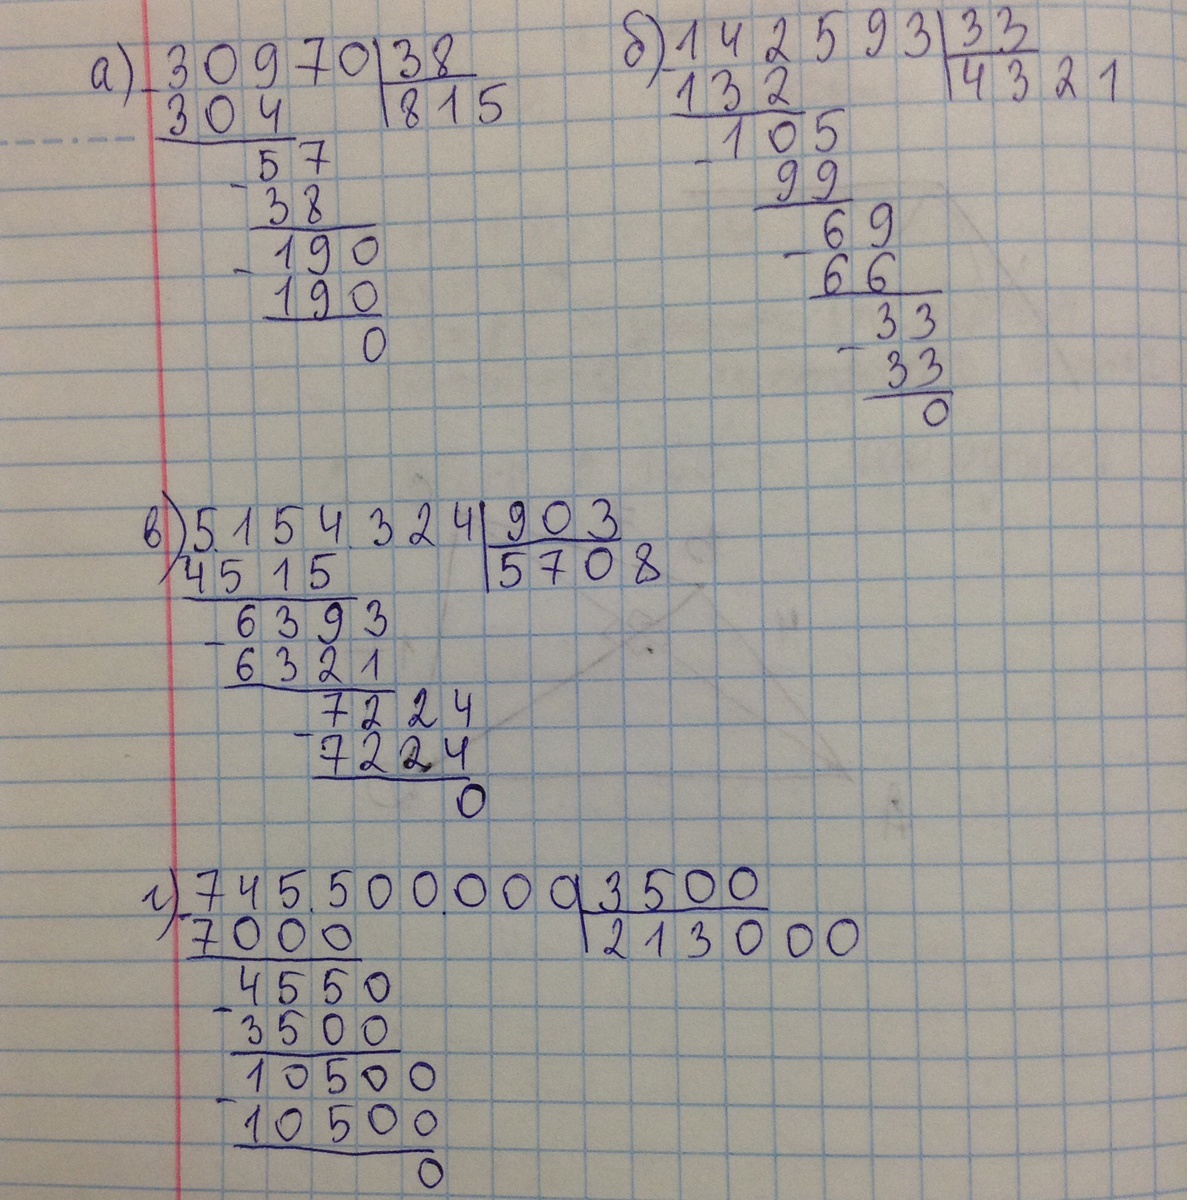 а) 30970 | 38
304 | 815
57
38
190
190
0
б) 142593 | 33
132 | 4321
105
99
69
66
33
33
0
в) 5.154.324 | 903
4515 | 5708
6393
6321
7224
7224
0
г) 745.500.000 | 3500
7000 | 213000
4550
3500
10500
10500
0